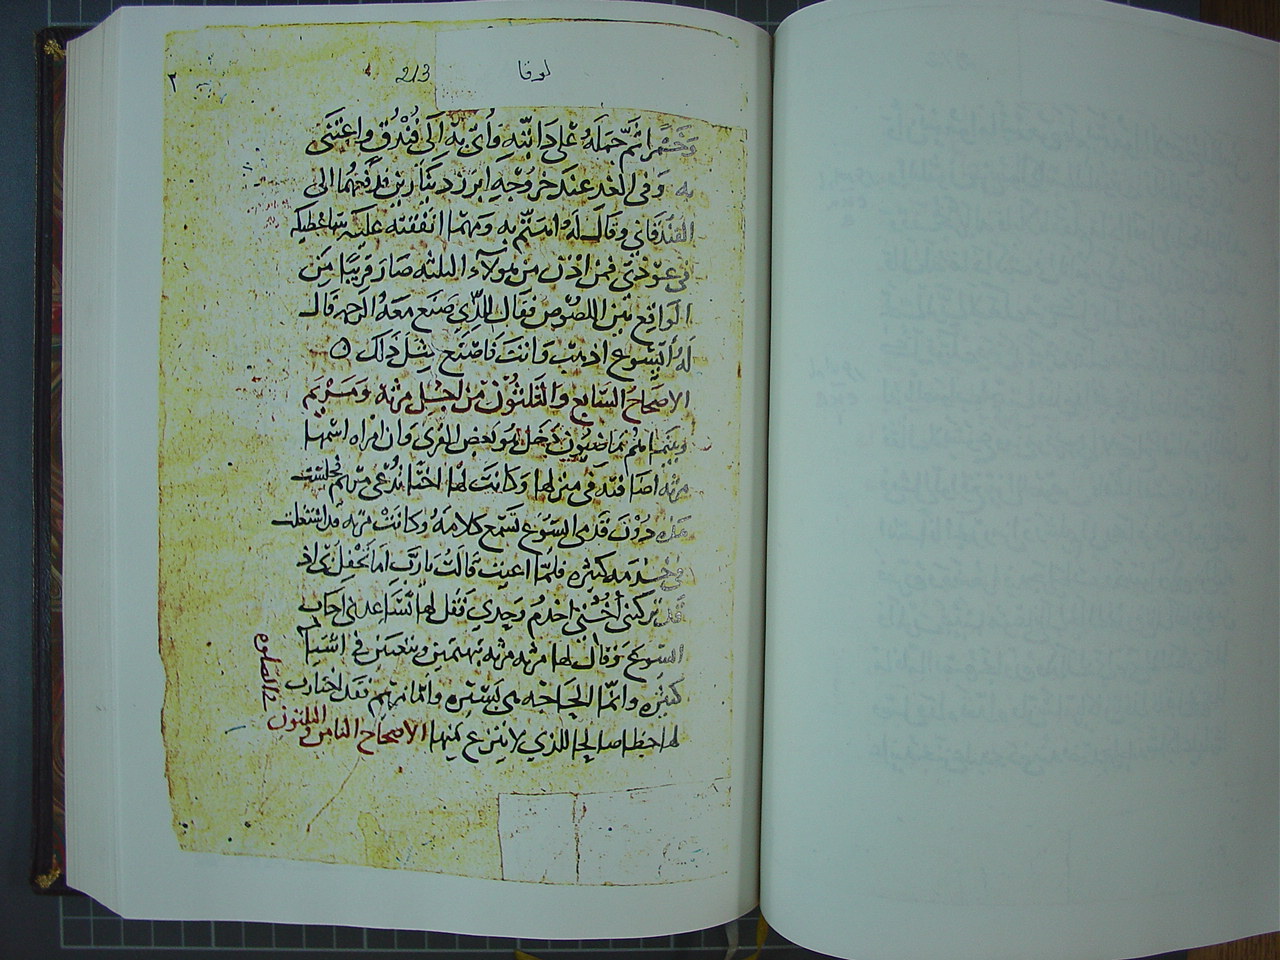 لوقا
213
٢
وخمرا ثم حمله على دابته واتى به الى فندق واعتنى
به وفي الغد عند خروجه ابرز دينارين فدفعهما الى
الفندقاني وقال له استتم به ومهما انفقته عليه ستاخطيكه
في عودتي فمن اذن من هولآء الثلثه صار قريبًا من
الواقع بين اللصوص فقال الذي صنع معه الرحمه قال
له أيسوع اذهب وانت فاصنع مثل ذلك
الاصحاح السابع والثلثون من اجل مرثه ومريم
وبينما هم ماضيون دخل هو بعض القرى وان امراه اسمها
مرثه اضافته في منزلها وكانت لها اختا تدعى مريم فجلست
هذه دون قدمى ايسوع تسمع كلامه وكانت مرثه قد اشتغلت
في خدمه كثيره فلما اعيت قالت يا رب اما تحفل بي اذ
قد تركتني أختي اخدم وحدي فقل لها تساعدني اجاب
ايسوع وقال لها مرثه مرثه تهتمين وتتعبين في اشيا
كثيره وانما الحاجه هي يسيره واما مريم فقد اختارت
لها حظا صالحا اللذي لا ينزع منها الاصحاح الثامن والثلثون
في الصلوه